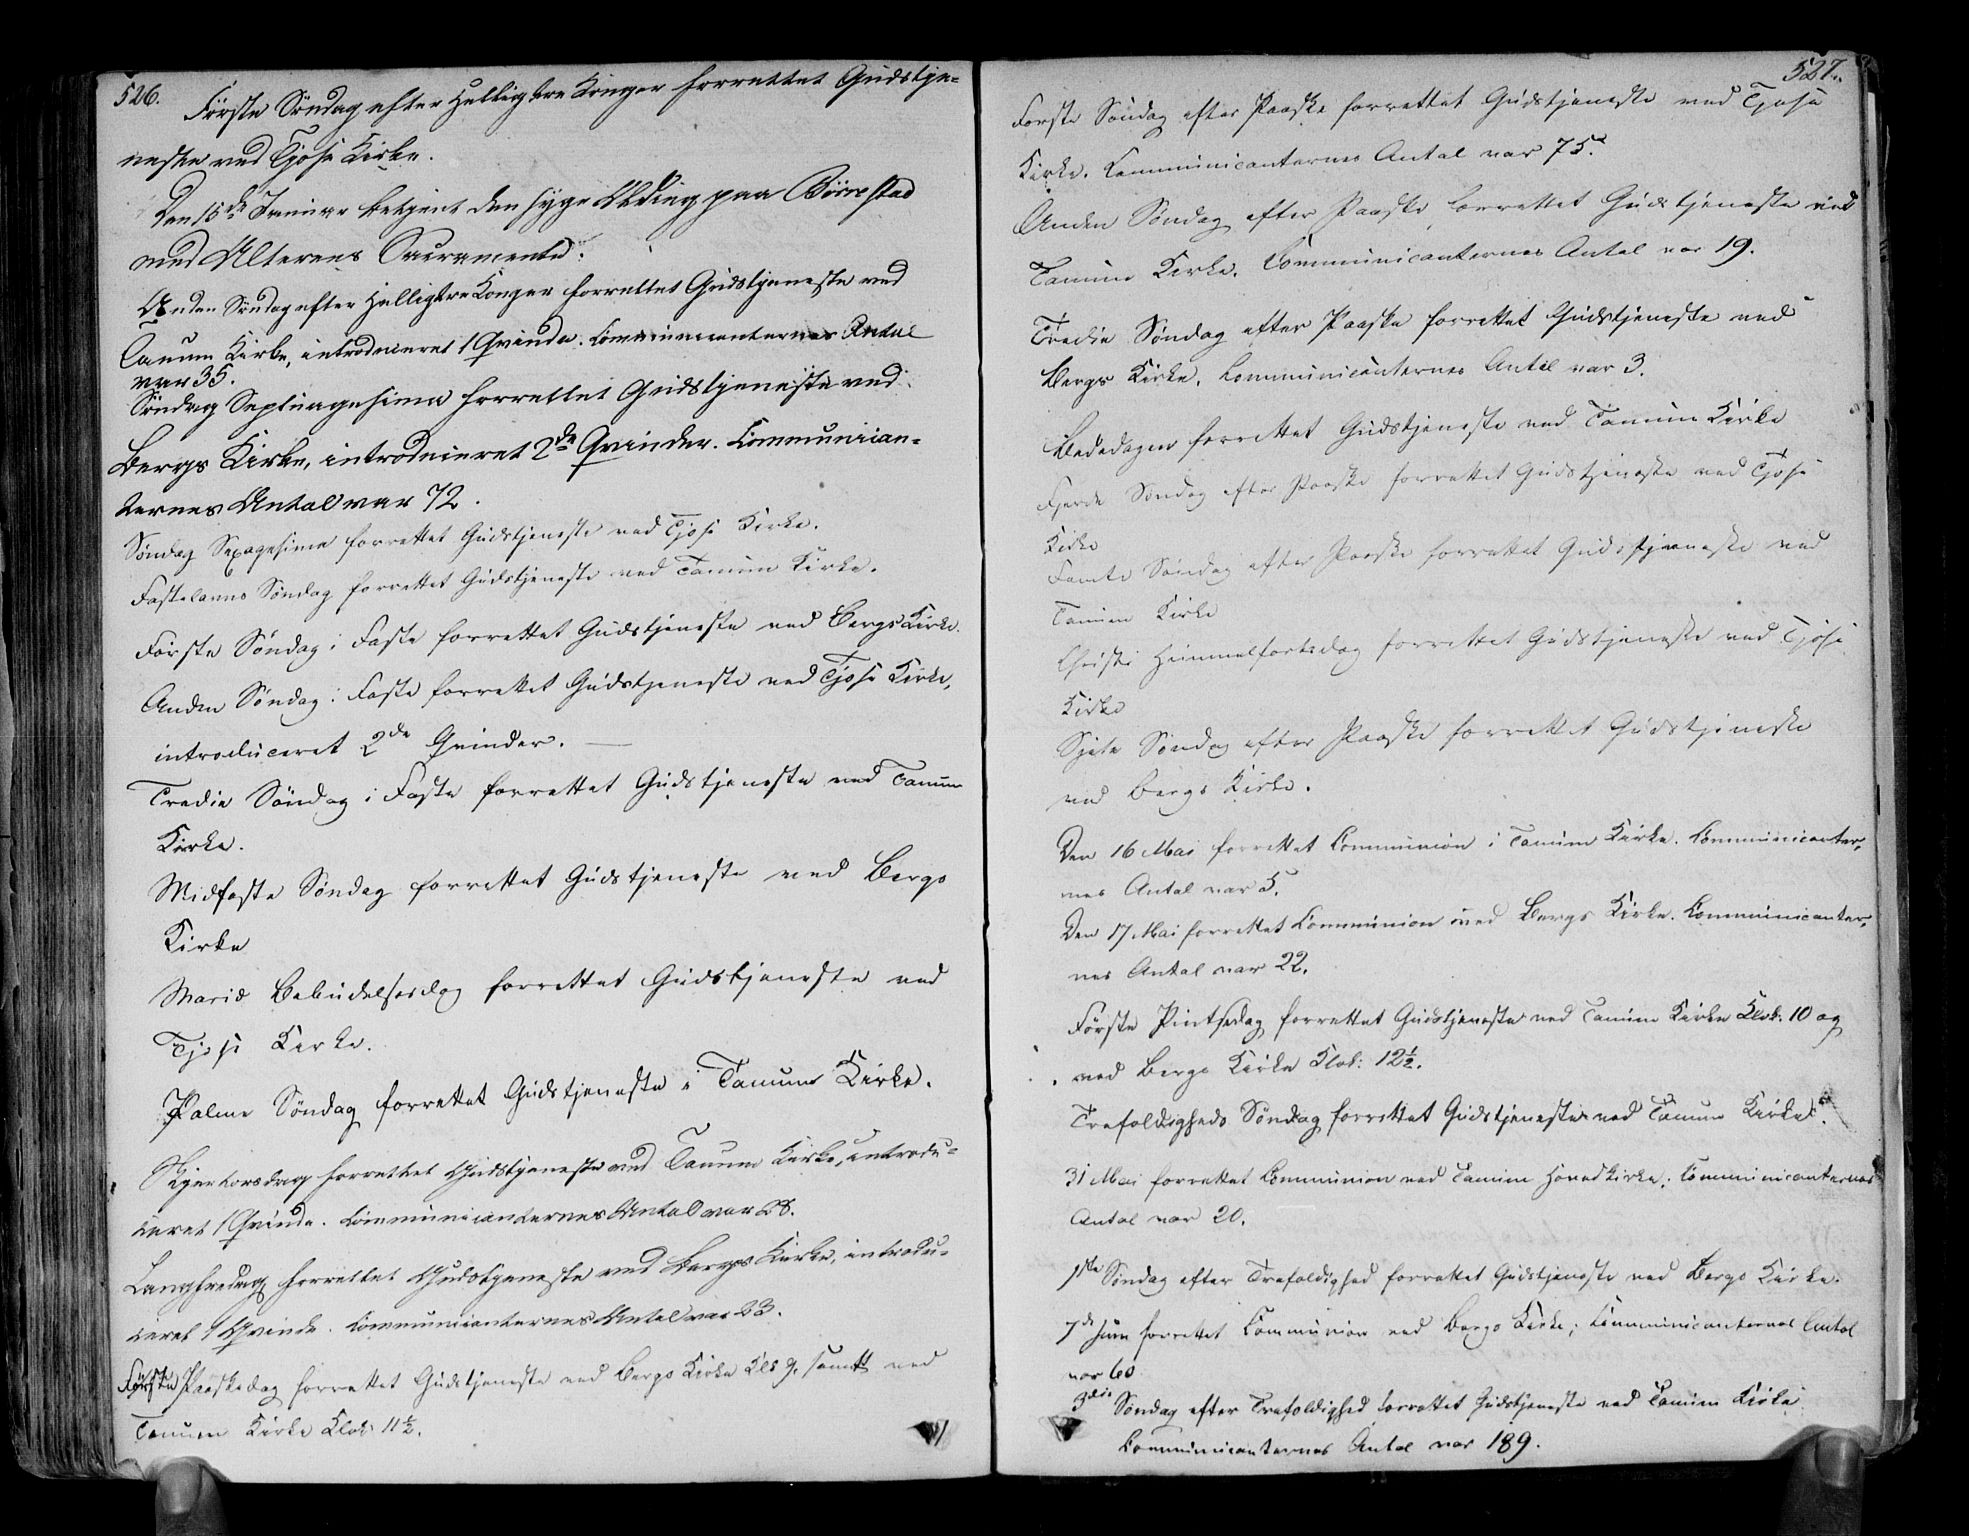 526.
Første Søndag efter Hellig tre Konger forrettet Gudstje-
neste ved Tjose Kirke.
Den 15de Januar betjent den syge Olding paa Börrestad
med Alterens Sacramente.
Anden Søndag efter Hellig tre Konger forrettet Gudstjeneste ved
Tanum Kirke, introduceret 1 Qvinde. Communicanternes Antal
var 35.
Søndag Septuagesima forrettet Gudstjeneste ved
Bergs Kirke, introduceret 2de Qvinder. Communican-
ternes Antal var 72.
Søndag Sexagesima forrettet Gudstjeneste ved Tjose Kirke.
Fastelavns Søndag forrettet Gudstjeneste ved Tanum Kirke.
Første Søndag i Faste forrettet Gudstjeneste ved Bergs Kirke.
Anden Søndag i Faste forrettet Gudstjeneste ved Tjose Kirke,
introduceret 2de Qvinder.
Tredie Søndag i Faste forrettet Gudstjeneste ved Tanum
Kirke.
Midfaste Søndag forrettet Gudstjeneste ved Bergs
Kirke
Mariæ Bebudelsesdag forrettet Gudstjeneste ved
Tjose Kirke.
Palme Søndag forrettet Gudstjeneste i Tanum Kirke.
Skjertorsdag forrettet Gudstjeneste ved Tanum Kirke, introdu-
ceret 1 Qvinde. Communicanternes Antal var 28.
Langfredag forrettet Gudstjeneste ved Bergs Kirke, introdu-
ceret 1 Qvinde. Communicanternes Antal var 23.
Første Paaskedag forrettet Gudstjeneste ved Bergs Kirke Kl. 9, samt ved
Tanum Kirke Klok: 11½.
527.
Første Søndag efter Paaske forrettet Gudstjeneste ved Tjose
Kirke. Communicanternes Antal var 75.
Anden Søndag efter Paaske forrettet Gudstjeneste ved
Tanum Kirke. Communicanternes Antal var 19.
Tredie Søndag efter Paaske forrettet Gudstjeneste ved
Bergs Kirke. Communicanternes Antal var 3.
Bededagen forrettet Gudstjeneste ved Tanum Kirke
Fjerde Søndag efter Paaske forrettet Gudstjeneste ved Tjose
Kirke
Femte Søndag efter Paaske forrettet Gudstjeneste ved
Tanum Kirke
Christi Himmelfartsdag forrettet Gudstjeneste ved Tjose
Kirke
Sjete Søndag efter Paaske forrettet Gudstjeneste
ved Bergs Kirke.
Den 16 Mai forrettet Communion i Tanum Kirke. Communicanter-
nes Antal var 5.
Den 17 Mai forrettet Communion ved Bergs Kirke. Communicanter-
nes Antal var 22.
Første Pintsedag forrettet Gudstjeneste ved Tanum Kirke Klok: 10 og
ved Bergs Kirke Klok: 12½.
Trefoldigheds Søndag forrettet Gudstjeneste ved Tanum Kirke.
31 Mai forrettet Communion ved Tanum Hovedkirke; Communicanternes
Antal var 20.
1ste Søndag efter Trefoldighed forrettet Gudstjeneste ved Bergs Kirke.
7de Juni forrettet Communion ved Bergs Kirke; Communicanternes Antal
var 60
3die Søndag efter Trefoldighed forrettet Gudstjeneste ved Tanum Kirke
Communicanternes Antal var 189.